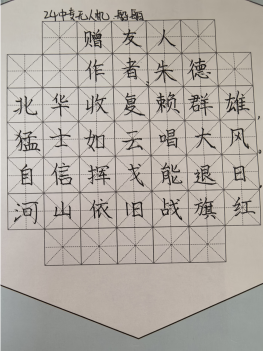 24中专无人机
赠友人
作者:朱德
北华收复赖群雄,
猛士如云唱大风,
自信挥戈能退日,
河山依旧战旗红